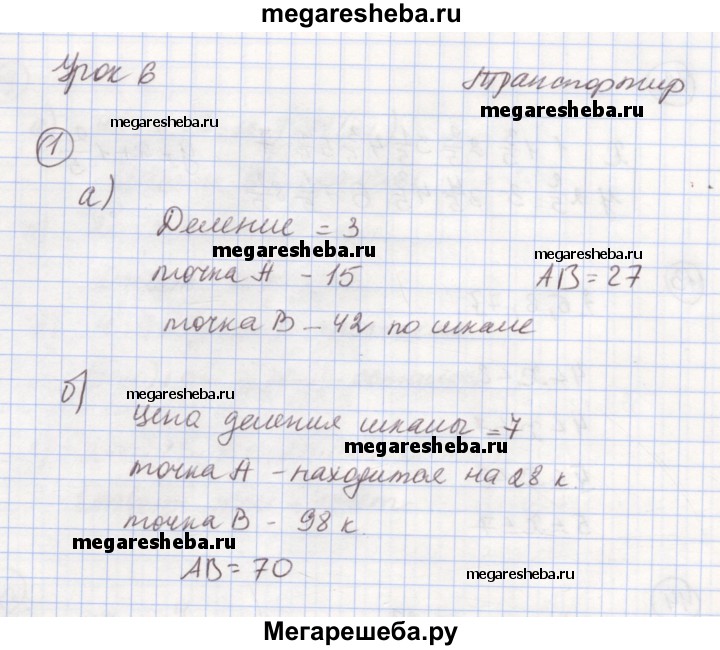 megaresheba.ru
Урок 6 Транспортир
megaresheba.ru
megaresheba.ru
1
а)
Деление = 3
megaresheba.ru megaresheba.ru
точка А - 15 АВ = 27
точка В - 42 по шкале
б) megaresheba.ru
цена деления шкалы = 7
megaresheba.ru
точка А - находится на 28 к.
точка В - 98 к.
megaresheba.ru
АВ = 70 megaresheba.ru
Мегарешеба.ру